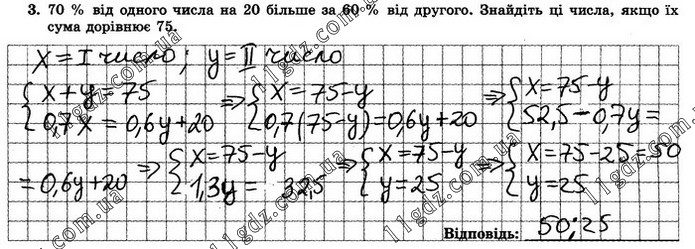 3. 70 % від одного числа на 20 більше за 60 % від другого. Знайдіть ці числа, якщо їх
сума дорівнює 75.
x = I число; y = II число
{ x + y = 75 ⇒ { x = 75 - y ⇒ { x = 75 - y
{ 0,7x = 0,6y + 20 { 0,7(75 - y) = 0,6y + 20 { 52,5 - 0,7y =
= 0,6y + 20 ⇒ { x = 75 - y ⇒ { x = 75 - y ⇒ { x = 75 - 25 = 50
{ 1,3y = 32,5 { y = 25 { y = 25
Відповідь: 50; 25
11gdz.com.ua